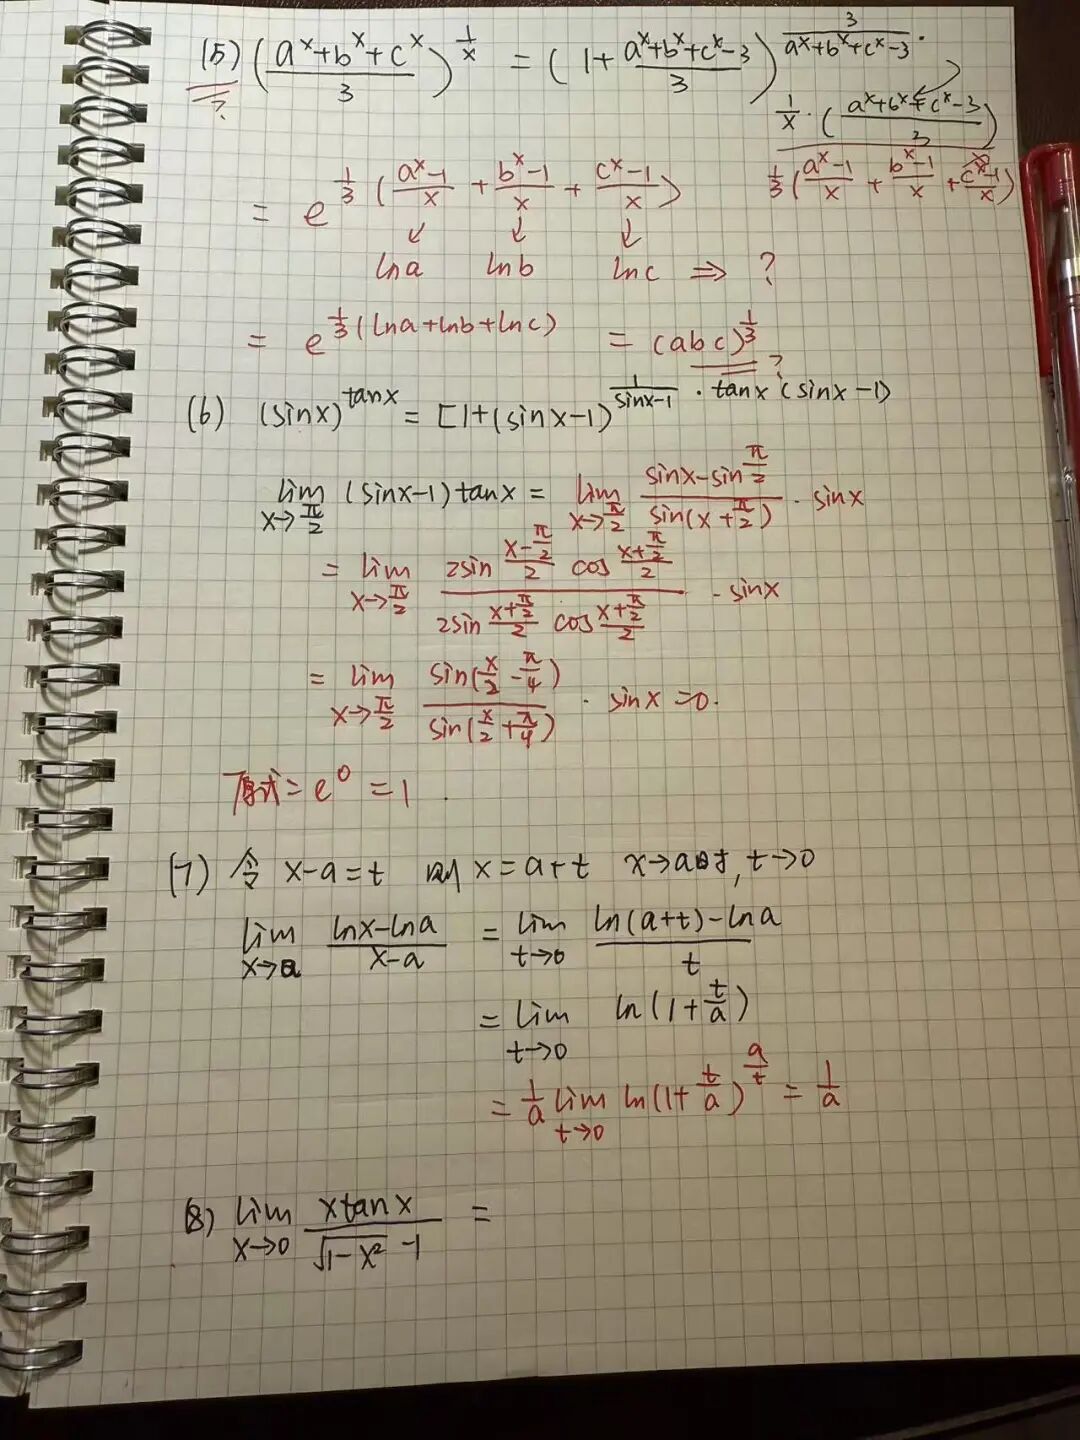 (5) (\frac{a^x+b^x+c^x}{3})^{\frac{1}{x}} = (1+\frac{a^x+b^x+c^x-3}{3})^{\frac{3}{a^x+b^x+c^x-3}·
?
\frac{1}{x}·(\frac{a^x+b^x+c^x-3}{3})}
= e^{\frac{1}{3}(\frac{a^x-1}{x}+\frac{b^x-1}{x}+\frac{c^x-1}{x})} \frac{1}{3}(\frac{a^x-1}{x}+\frac{b^x-1}{x}+\frac{c^x-1}{x})
↓ ↓ ↓
lna lnb lnc ⇒ ?
= e^{\frac{1}{3}(lna+lnb+lnc)} = (abc)^{\frac{1}{3}} ?
(6) (sinx)^{tanx} = [1+(sinx-1)^{\frac{1}{sinx-1}·tanx(sinx-1)}
\lim_{x→\frac{π}{2}} (sinx-1)tanx = \lim_{x→\frac{π}{2}} \frac{sinx-sin\frac{π}{2}}{sin(x+\frac{π}{2})}·sinx
= \lim_{x→\frac{π}{2}} \frac{2sin\frac{x-\frac{π}{2}}{2} cos\frac{x+\frac{π}{2}}{2}}{2sin\frac{x+\frac{π}{2}}{2} cos\frac{x+\frac{π}{2}}{2}}·sinx
= \lim_{x→\frac{π}{2}} \frac{sin(\frac{x}{2}-\frac{π}{4})}{sin(\frac{x}{2}+\frac{π}{4})}·sinx=0.
原式=e^0=1.
(7) 令 x-a=t 则 x=a+t x→a时,t→0
\lim_{x→a} \frac{lnx-lna}{x-a} = \lim_{t→0} \frac{ln(a+t)-lna}{t}
= \lim_{t→0} ln(1+\frac{t}{a})
= \frac{1}{a}\lim_{t→0} ln(1+\frac{t}{a})^{\frac{a}{t}} = \frac{1}{a}
(8) \lim_{x→0} \frac{xtanx}{\sqrt{1-x^2}-1} =